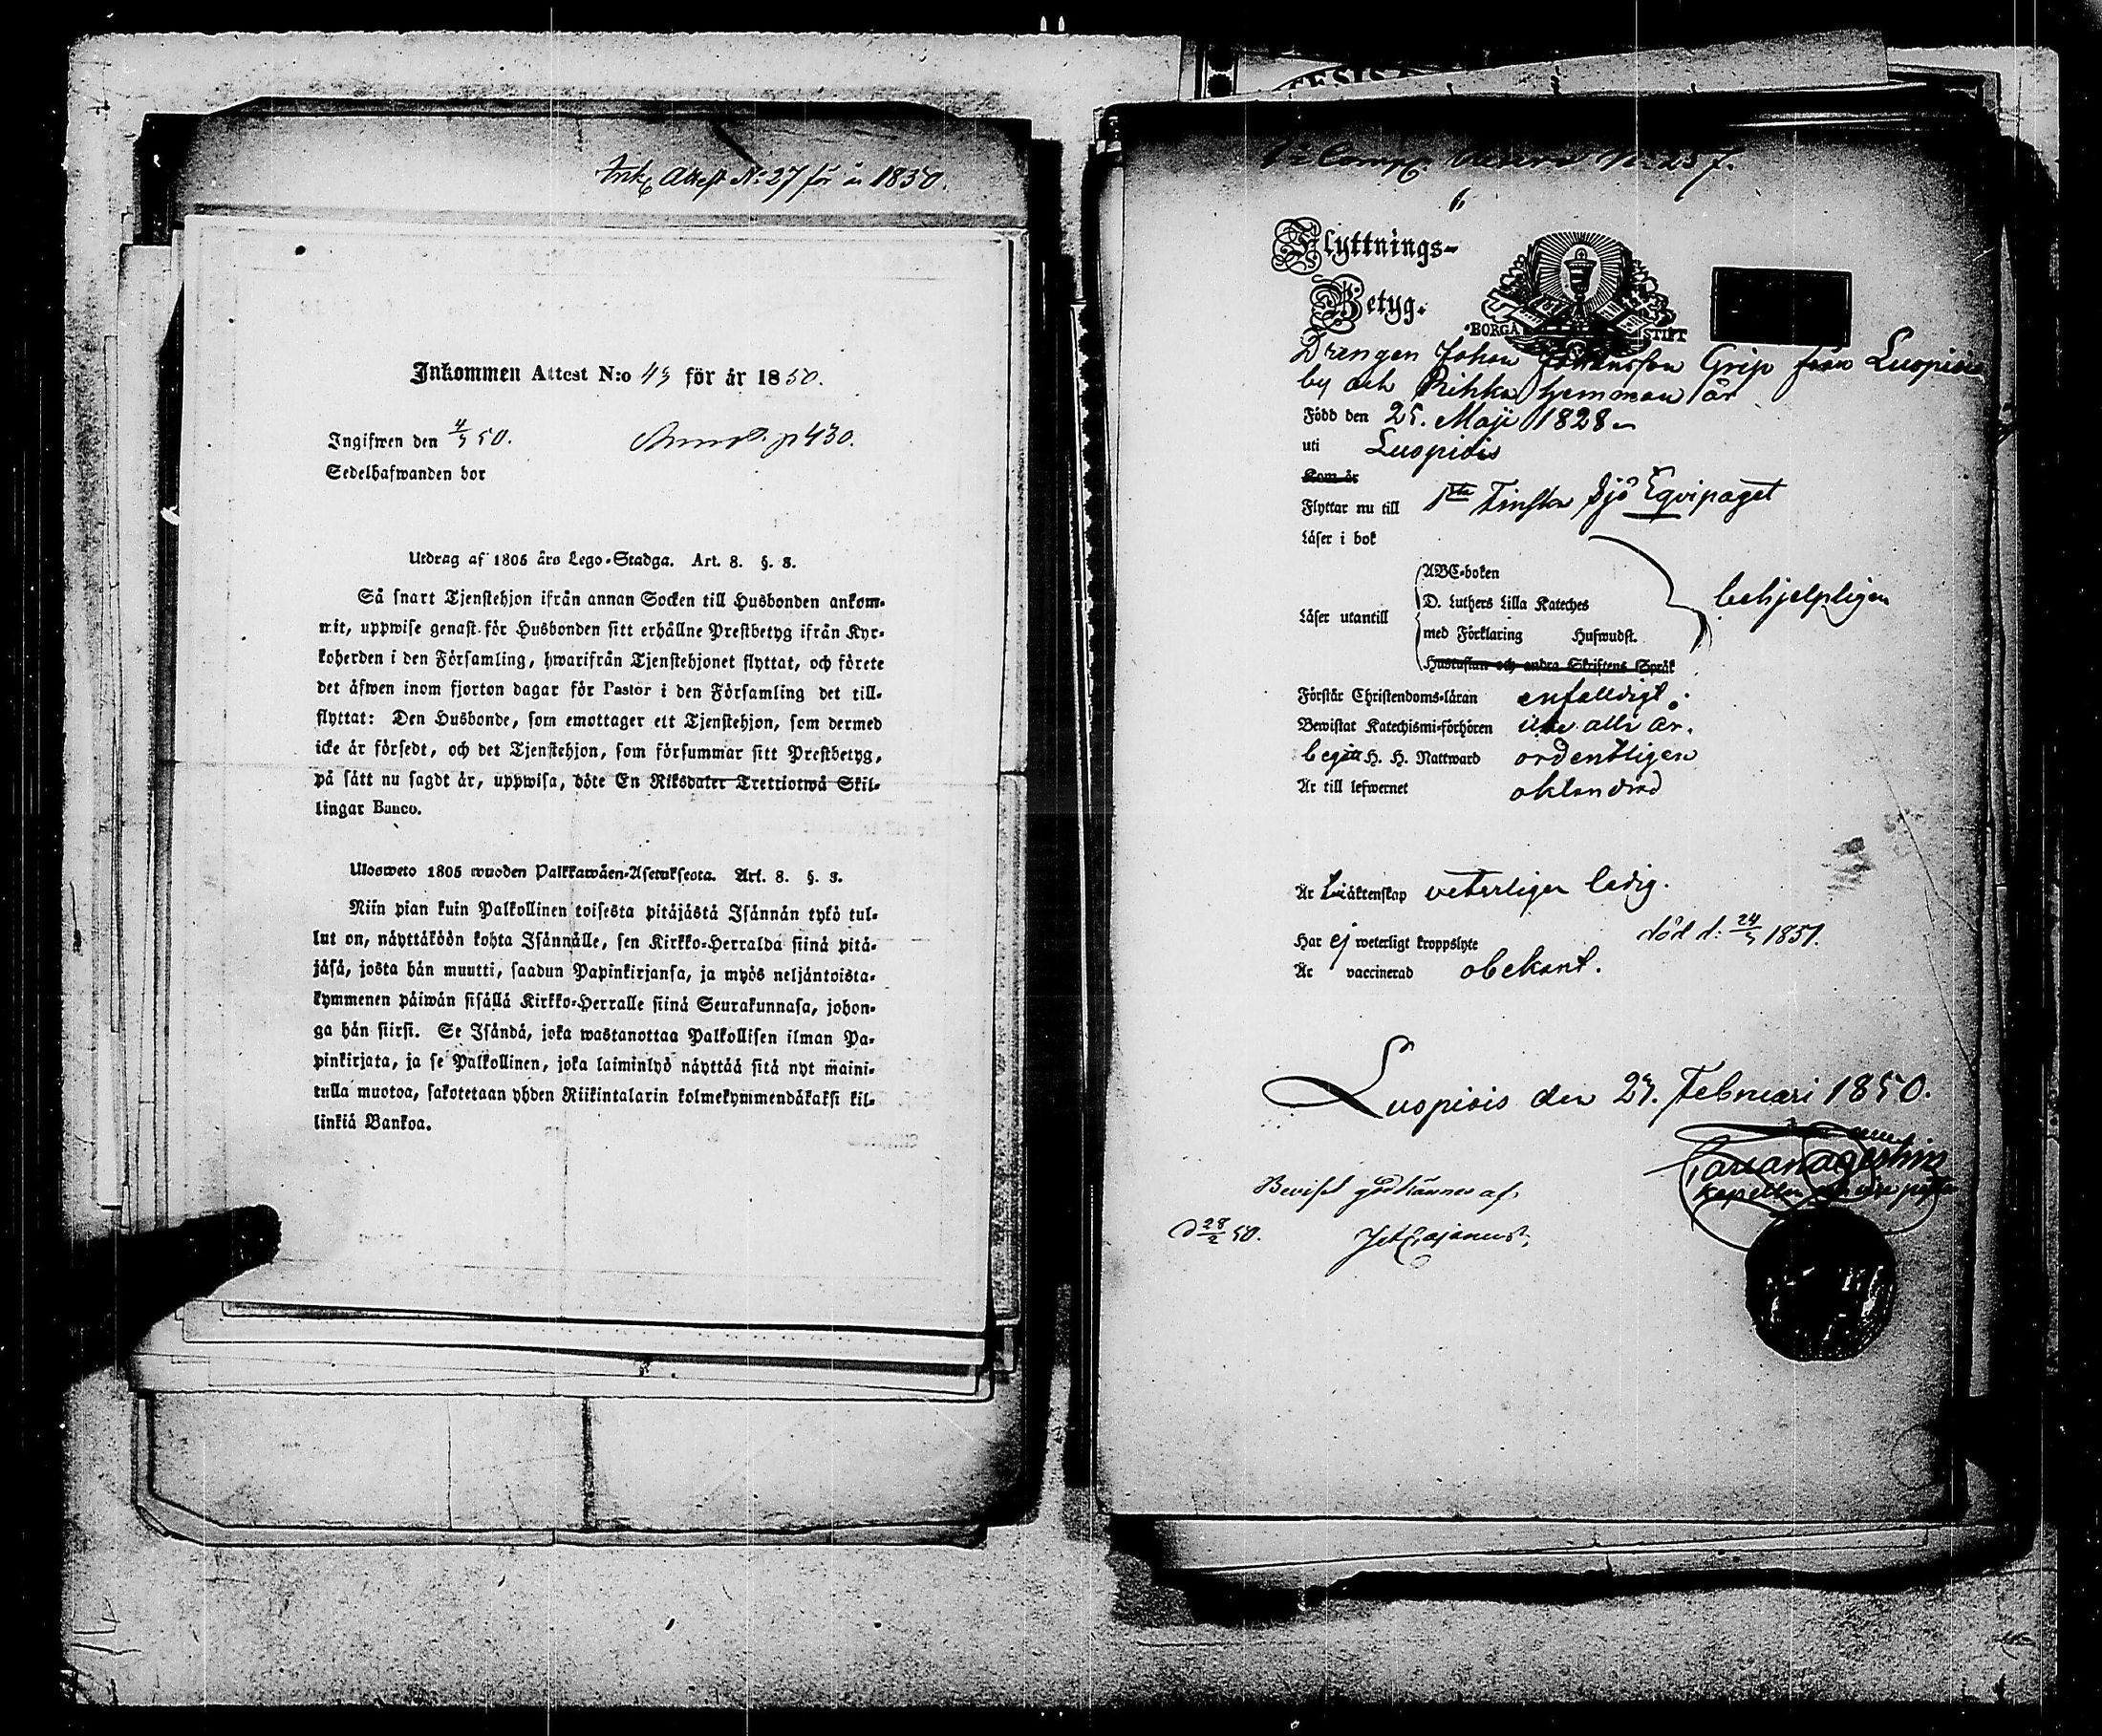 Ink. Attest N:o 27 för år 1850.
Inkommen Attest N:o 43 för år 1850.
Ingifwen den 4/3 50. p 430.
Sedelhafwanden bor
Utdrag af 1805 års Lego-Stadga. Art. 8. §. 3.
Så snart Tjenstehjon ifrån annan Socken till Husbonden ankom-
mit, uppwise genast för Husbonden sitt erhållne Prestbetyg ifrån Kyr-
koherden i den Församling, hwarifrån Tjenstehjonet flyttat, och förete
det äfwen inom fjorton dagar för Pastor i den Församling det till-
flyttat: Den Husbonde, som emottager ett Tjenstehjon, som dermed
icke är försedt, och det Tjenstehjon, som försummar sitt Prestbetyg,
på sätt nu sagdt är, uppwisa, böte En Riksdaler Trettiotwå Skil-
lingar Banco.
Ulosweto 1805 wuoden Palkkawäen-Asetuksesta. Art. 8. §. 3.
Niin pian kuin Palkollinen toisesta pitäjästä Isännän tykö tul-
lut on, näyttäköön kohta Isännälle, sen Kirkko-Herralda siinä pitä-
jäsä, josta hän muutti, saadun Papinkirjansa, ja myös neljäntoista-
kymmenen päiwän sisällä Kirkko-Herralle siinä Seurakunnasa, johon-
ga hän siirsi. Se Isändä, joka wastanottaa Palkollisen ilman Pa-
pinkirjata, ja se Palkollinen, joka laiminlyö näyttää sitä nyt maini-
tulla muotoa, sakotetaan yhden Riikintalarin kolmekymmendäkaksi kil-
linkiä Bankoa.
Flyttnings-
Betyg.
BORGÅ STIFT
Drengen Johan Johansson Grip från Luopiois
by och hemman är
Född den 25. Maji 1828
uti Luopiois
Kom år
Flyttar nu till 1sta Finska Sjö Eqvipaget
Läser i bok
ABC-boken
Läser utantill D. Luthers Lilla Kateches behjelpligen
med Förklaring Hufwudst.
Hustaflan och andra Skriftens Språk
Förstår Christendoms-läran enfaldigt.
Bewistat Katechismi-förhören alla år.
begått H. H. Nattward ordentligen
Är till lefwernet oklandrad
Är till äktenskap veterligen ledig.
död d: 24/5 1851.
Har ej weterligt kroppslyte
Är vaccinerad obekant.
Luopiois den 27. Februari 1850.
Beviset godkännes af
d 28/2 50. Cajanus